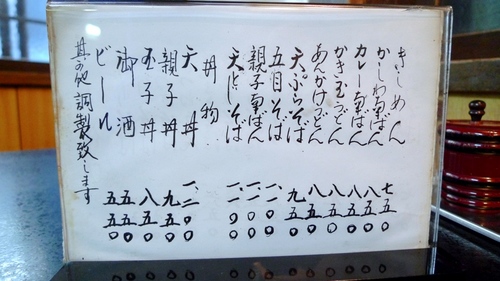 きしめん 七五〇
かしわ南ばん 八五〇
カレー南ばん 八五〇
かき玉うどん 八五〇
あんかけうどん 八五〇
天ぷらそば 九五〇
五目そば
親子南ばん 一、一〇〇
天とじそば 一、一〇〇
丼物
天丼 一、二〇〇
親子丼 九五〇
玉子丼 八五〇
御酒 五五〇
ビール 五五〇
其の他調製致します